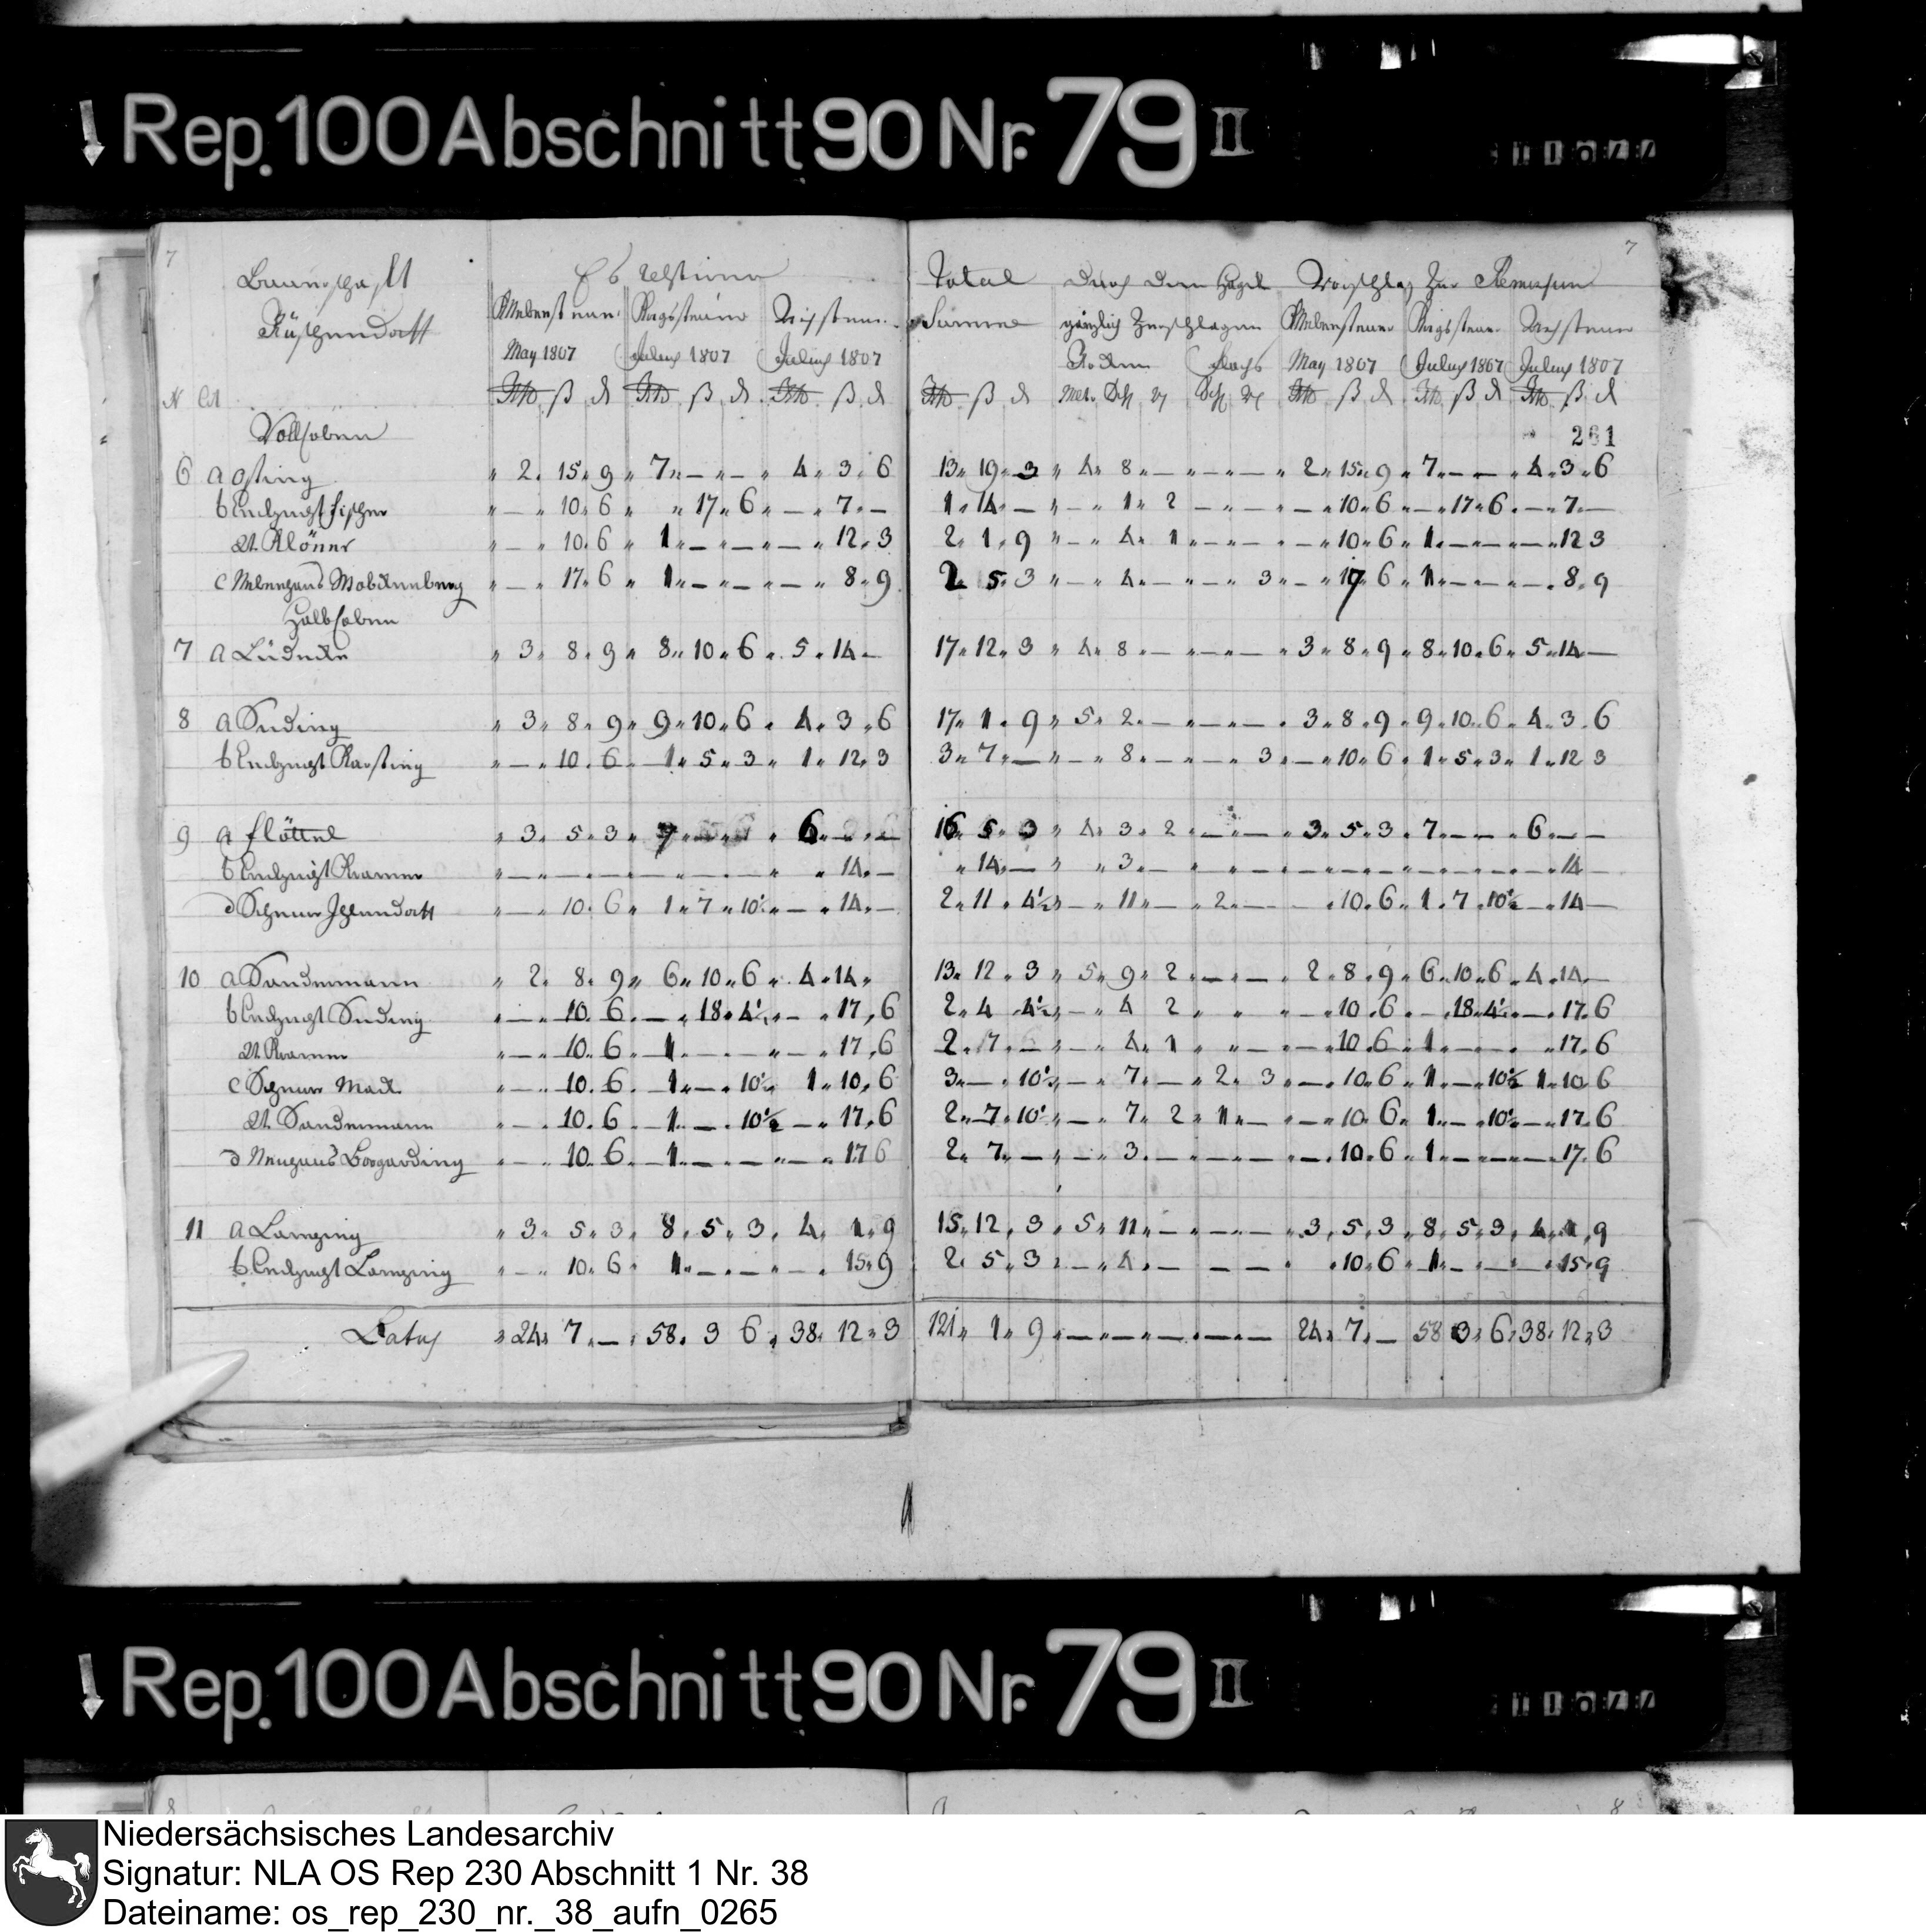 Rep. 100 Abschnitt 90 Nr. 79 II
7 7
Baurschaft Es restiren Total durch dem Hagel Vorschlag zur Remission
Rüschendorff Nebensteuer Kriegssteuer Summe gänzlich zerschlagen Nebensteuer Kriegssteuer
May 1807 Julius 1807 Julius 1807 Rocken Flachs May 1807 Julius 1807 Julius 1807
N Lit Rth ß d Rth ß d Rth ß d Rth ß d Rth ß d Rth ß d Rth ß d
Vollerben 261
6 a Osting 2 15 9 7 — — 4 3 6 13 19 3 4 8 — — — 2 15 9 7 — — 4 3 6
b Leibzucht Fischer — 10 6 17 6 — 7 — 1 14 — — 1 2 — — — 10 6 — 17 6 — 7 —
2t Klöner — 10 6 1 — — — 12 3 2 1 9 — 4 1 — — — 10 6 1 — — — 12 3
c — 17 6 1 — — — 8 9 2 5 3 — 4 — — 3 — 17 6 1 — — — 8 9
Halberben
7 a Lüdeke 3 8 9 8 10 6 5 14 — 17 12 3 4 8 — — — 3 8 9 8 10 6 5 14 —
8 a Suding 3 8 9 9 10 6 4 3 6 17 1 9 5 2 — — — 3 8 9 9 10 6 4 3 6
b Leibzucht Karsting — 10 6 1 5 3 1 12 3 3 7 — — 8 — — 3 — 10 6 1 5 3 1 12 3
9 a Flöttel 3 5 3 7 — 6 — — 16 5 3 4 3 2 — — 3 5 3 7 — — 6 — —
b Leibzucht Kramer — — — — — — 14 — 14 — 3 — — — — — — — — — — 14 —
d Scheuer Ihlendorff — 10 6 1 7 10½ — 14 — 2 11 4½ — 11 — 2 — 10 6 1 7 10½ — 14 —
10 a Sandermann 2 8 9 6 10 6 4 14 13 12 3 5 9 2 — — 2 8 9 6 10 6 4 14 —
b Leibzucht Suding — 10 6 — 18 4½ — 17 6 2 4 4½ — 4 2 — 10 6 — 18 4½ — 17 6
2t Kramer — 10 6 1 — — — 17 6 2 7 — — 4 1 — — 10 6 1 — — 17 6
c Scheuer — 10 6 1 — 10½ 1 10 6 3 — 10½ — 7 — 2 3 — 10 6 1 — 10½ 1 10 6
2t Sandermann — 10 6 1 — 10½ — 17 6 2 7 10½ — 7 2 1 — — 10 6 1 — 10½ — 17 6
d Neuhaus Borgerding — 10 6 1 — — — 17 6 2 7 — — 3 — — — — 10 6 1 — — — 17 6
11 a Lamping 3 5 3 8 5 3 4 1 9 15 12 3 5 11 — — — 3 5 3 8 5 3 4 1 9
b Leibzucht Lamping — 10 6 1 — — — 15 9 2 5 3 — 4 — — — 10 6 1 — 15 9
Latus 24 7 — 58 3 6 38 12 3 121 1 9 — — — — — 24 7 — 58 3 6 38 12 3
Rep. 100 Abschnitt 90 Nr. 79 II
Niedersächsisches Landesarchiv
Signatur: NLA OS Rep 230 Abschnitt 1 Nr. 38
Dateiname: os_rep_230_nr._38_aufn_0265